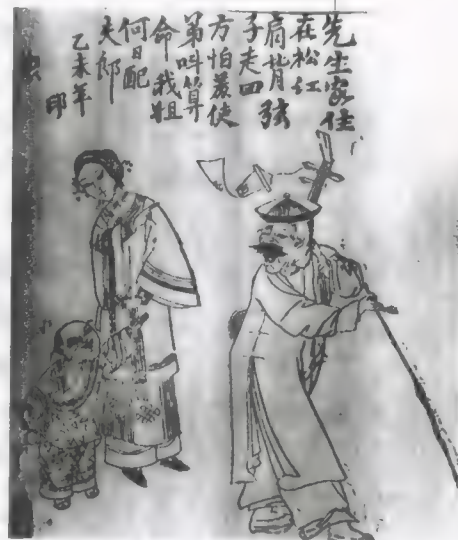 先生家住
在松江
肩背弦
子走四
方怕羞使
弟叫算
命我姐
何日配
夫郎
乙未年
印